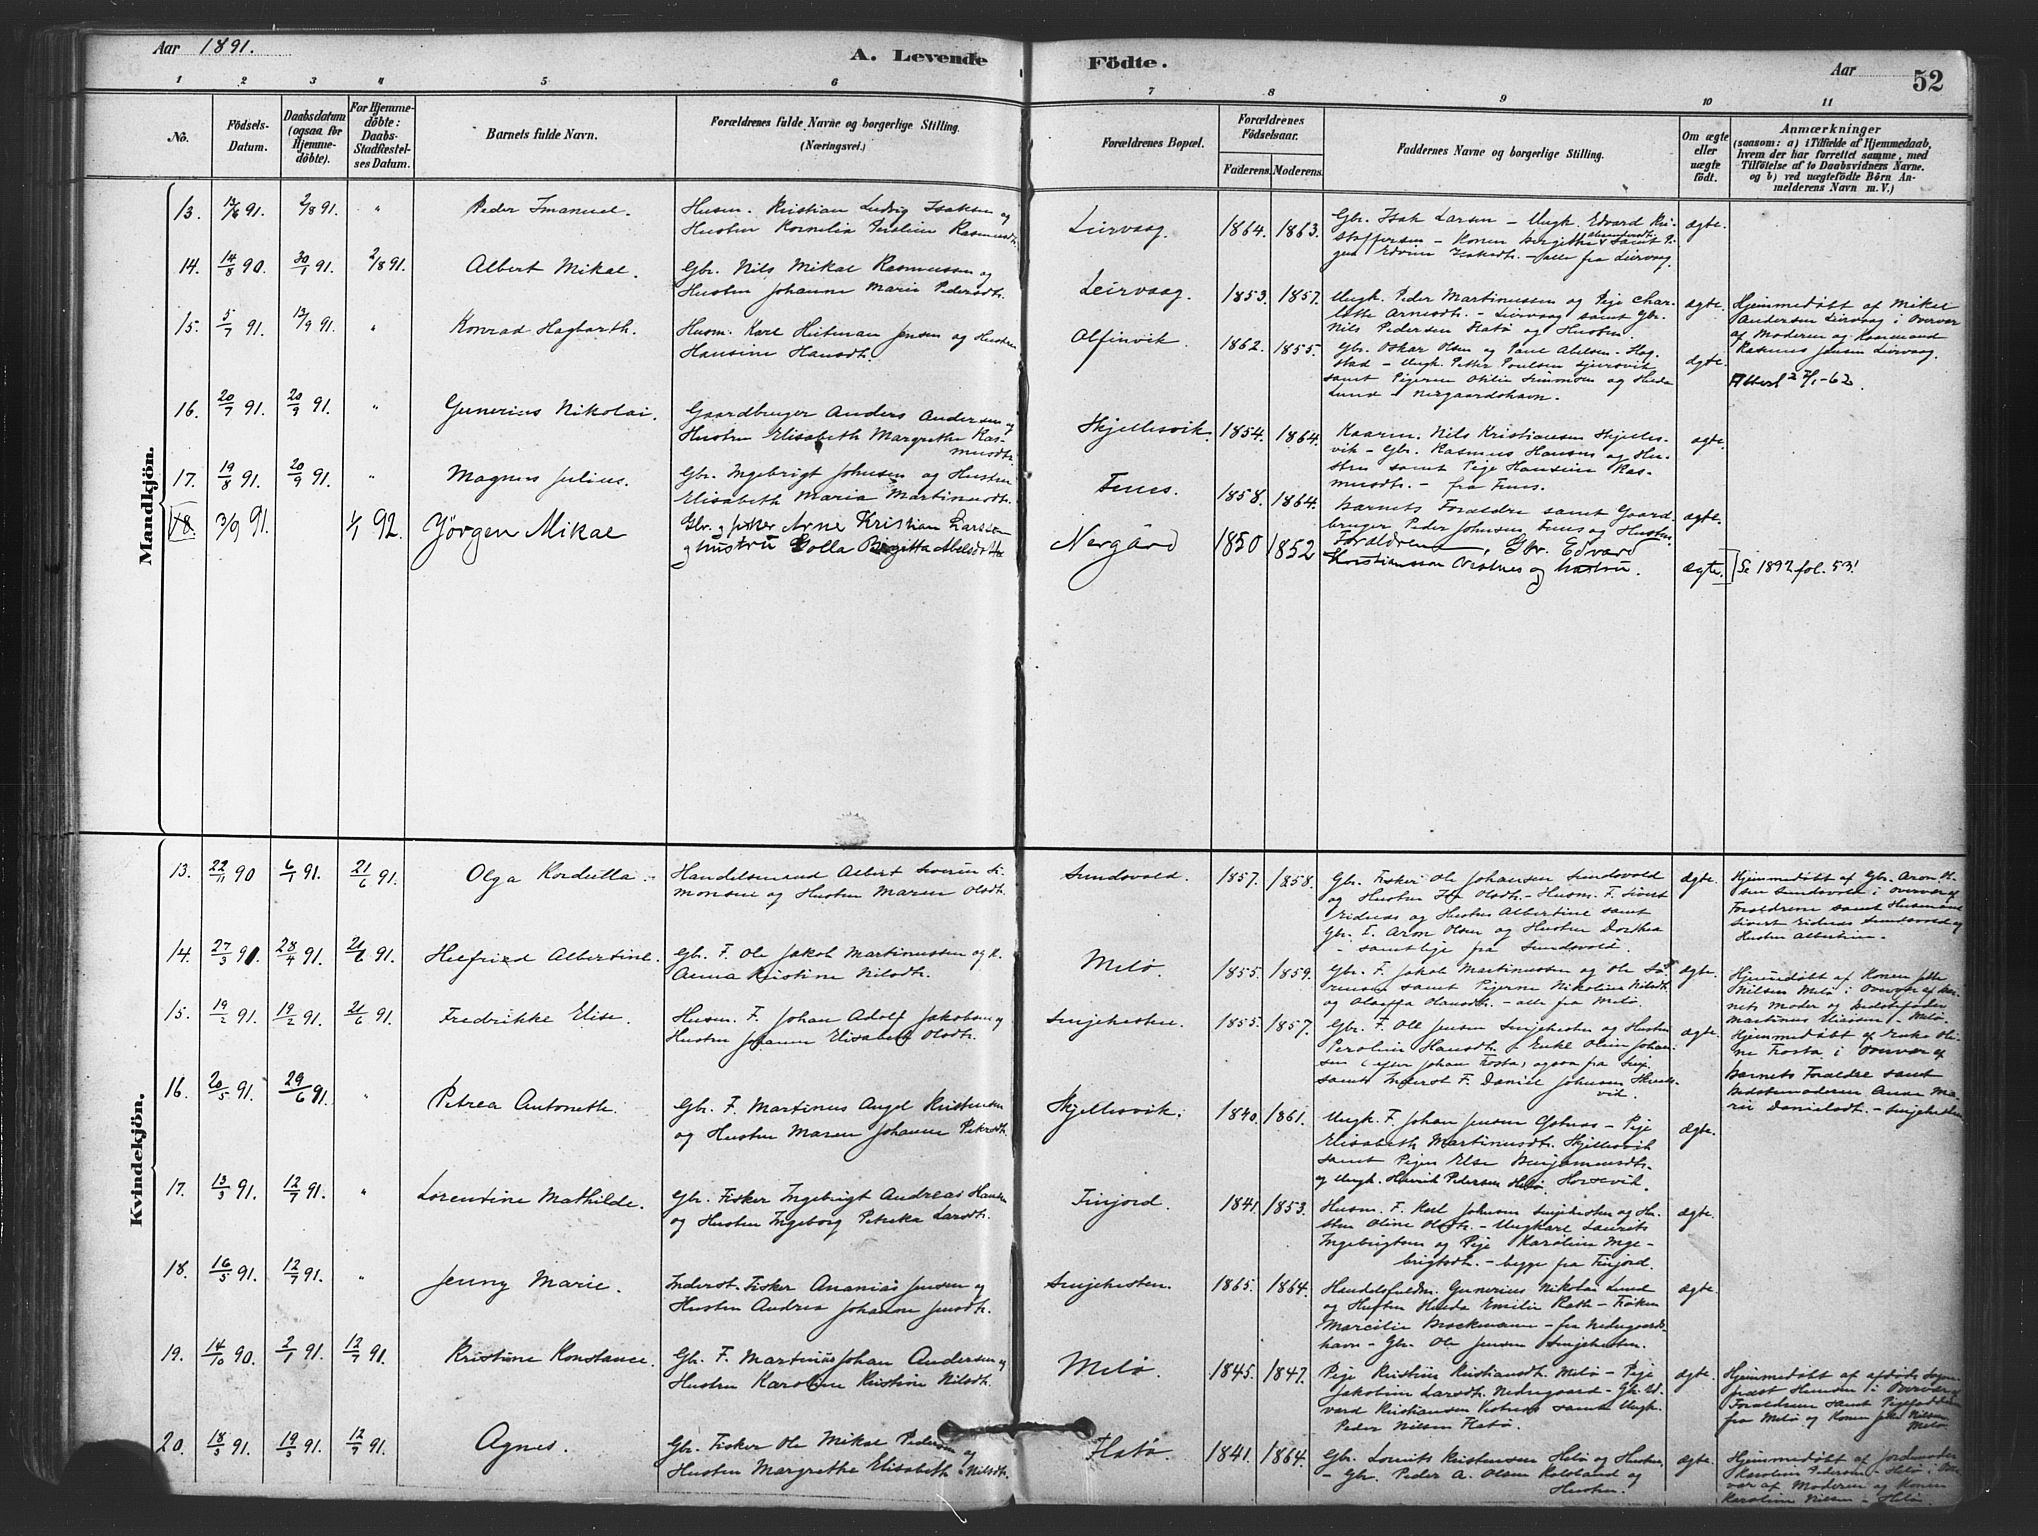 Aar 1891.
A. Levende Födte.
Aar
52
1 2 3 4 5 6 7 8 9 10 11
No.
Födsels-
Datum.
Daabsdatum
(ogsaa for
Hjemme-
döbte).
For Hjemme-
döbte:
Daabs-
Stadfæstel-
ses Datum.
Barnets fulde Navn.
Forældrenes fulde Navne og borgerlige Stilling.
(Næringsvei.)
Forældrenes Bopæl.
Forældrenes
Födselsaar.
Faderens. Moderens.
Faddernes Navne og borgerlige Stilling.
Om ægte
eller
uægte
födt.
Anmærkninger
(saasom: a) i Tilfælde af Hjemmedaab,
hvem der har forrettet samme, med
Tilföielse af to Daabsvidners Navne.
og b) ved uægtefödte Börn An-
melderens Navn m. V.)
Mandkjön.
13. 13/6 91. 2/8 91. " Peder Imanuel. Husm. Kristian Ludvig Isaksen og
Hustru Kornelia Rasmusdt.
Leirvaag. 1864. 1863. Gbr. Isak Larsen – Ungk. Edvard Kri-
stoffersen – Konen Bergitte samt Pi-
gen Edvine Isaksdt. – alle fra Leirvaag.
ægte.
14. 14/8 90. 30/1 91. 2/8 91. Albert Mikal. Gbr. Nils Mikal Rasmussen og
Hustru Johanne Marie Pedersdt.
Leirvaag. 1853. 1857. Ungk. Peder Martinussen og Pige Char-
lotte Arnesdt. – Leirvaag samt Gbr.
Nils Pedersen Flatø og Hustru.
ægte. Hjemmedøbt af Mikal
Andersen Leirvaag i Overvær
af Moderen og Kaarmand
Rasmus Jensen Leirvaag.
15. 5/7 91. 13/9 91. " Konrad Hagbarth. Husm. Karl Heitman Jensen og Hustru
Hansine Hansdt.
Olfinvik. 1862. 1855. Gbr. Oskar Olsen og Paul Abelsen – Hog-
stad – Ungk. Petter Poulsen
samt Pigerne Otilie Simonsen og Hilda
Lund i Nergaardshavn.
ægte. Attest 27/1-62.
16. 20/7 91. 20/9 91. " Gunerius Nikolai. Gaardbruger Anders Andersen og
Hustru Elisabeth Margrethe Ras-
musdt.
Skjellesvik. 1854. 1864. Kaarm. Nils Kristiansen Skjelles-
vik – Gbr. Rasmus Hansen og Hu-
stru samt Pige Hansine Ras-
musdt. – fra Fuus.
ægte.
17. 19/8 91. 20/9 91. " Magnus Julius. Gbr. Ingebrigt Johnsen og Hustru
Elisabeth Maria Martinusdt.
Fuus. 1858. 1864. Barnets Forældre samt Gaard-
bruger Peder Johnsen Fuus og Hustru.
ægte.
18. 3/9 91. 1/1 92. Jörgen Mikal Gbr. og fisker Arne Kristian Larssen
og hustru Golla Birgitta Abelsdotter
Nergård 1850 1852 Foraldrene, Gbr. Edvard
Kristianssen Vestnes og hustru.
ægte. Se 1892 fol. 53!
Kvindekjön.
13. 22/11 90 6/1 91. 21/6 91. Olga Kordulla. Handelsmand Albert Severin Si-
monsen og Hustru Maren Olsdt.
Sundsvold. 1857. 1858. Gbr. Fisker Ole Johansen Sundsvold
og Hustru Olsdt. – Husm. F. Sivert
Eidnæs og Hustru Albertine samt
Gbr. F. Aron Olsen og Hustru Dorthea
– samtlige fra Sundsvold.
ægte. Hjemmedøbt af Gbr. Aron Ol-
sen Sundsvold i Overvær af
Forældrene samt Husmand
Sivert Eidnæs Sundsvold og
Hustru Albertine.
14. 27/3 91. 28/4 91. 21/6 91. Helfried Albertine. Gbr. F. Ole Jakob Martinussen og H.
Anna Kristine Nilsdt.
Melø. 1855. 1859. Gbr. F. Jakob Martinussen og Ole Sø-
rensen samt Pigerne Nikoline Nilsdt.
og Oleffa Hansdt. – alle fra Melø.
ægte. Hjemmedøbt af Konen
Nilsen Melø i Overvær af Bar-
nets Moder og Bedstefader
Martinus Eliassen – Melø.
15. 19/2 91. 19/2 91. 21/6 91. Fredrikke Elise. Husm. F. Johan Adolf Jakobsen og
Hustru Johanne Elisabeth Olsdt.
Snighesten. 1855. 1857. Gbr. F. Ole Jensen Snighesten og Hustru
Peroline Hansdt. – Enke Oline Johan-
sen (efter Johan Frosta) ogsaa fra Snig.
samt Inderst F. Daniel Johnsen
vik.
ægte. Hjemmedøbt af Enke Oli-
ne Frosta i Overvær af
Barnets Forældre samt
Bedstemoderen Anne Ma-
rie Danielsdt. – Snighesten.
16. 20/5 91. 29/6 91. " Petrea Antonette. Gbr. F. Martinus Angel Kristensen
og Hustru Maren Johanne Petersdt.
Skjellesvik. 1840. 1861. Ungk. F. Johan Jensen – Pige
Elisabeth Martinusdt. Skjellesvik
samt Pigen Else Benjaminsdt.
og Ungk. Henrik Pedersen Horsevik.
ægte.
17. 13/3 91. 12/7 91. " Lorentine Mathilde. Gbr. Fisker Ingebrigt Andreas Hansen
og Hustru Ingeborg Petrikka Larsdt.
Finjord. 1841. 1853. Husm. F. Karl Johnsen Snighesten og Hu-
stru Oline Olsdt. – Ungkarl Laurits
Ingebrigtsen og Pige Karoline Inge-
brigtsdt. – begge fra Finjord.
ægte.
18. 16/5 91. 12/7 91. " Jenny Marie. Inderst. Fisker Ananias Jensen og
Hustru Andrea Johanna Jensdt.
Snighesten. 1865. 1864. Handelsfuldm. Gunerius Nikolai Lund
og Hustru Hilda Emilie Rath – Frøken
Marcilie Brockmann – fra Nedregaards-
havn – Gbr. Ole Jensen Snighesten.
ægte.
19. 14/10 90. 2/1 91. 12/7 91. Kristine Konstance. Gbr. F. Martinus Johan Andersen og
Hustru Karoline Kristine Nilsdt.
Melø. 1845. 1847. Pige Kristine Kristiansdt. Melø – Pige
Jakobine Larsdt. Nedregaard – Gbr. Ed-
vard Kristiansen Vestnes samt Ungk.
Peder Nilsen Flatø.
ægte. Hjemmedøbt af afdøde Sogne-
præst Hansen i Overvær af
Forældrene samt
fra Melø og Konen Nilsen
Melø.
20. 18/3 91. 19/3 91. 12/7 91. Agnes. Gbr. Fisker Ole Mikal Pedersen og
Hustru Margrethe Elisabeth Nilsdt.
Flatø. 1841. 1864. Gbr. Lourits Kristensen Helø og Hustru
– Gbr. Peder A. Olsen og
Hustru.
ægte. Hjemmedøbt af Jordmoder
Karoline Pedersen – Helø i Over-
vær af Moderen og Konen
Karoline Nilsen – Helø.